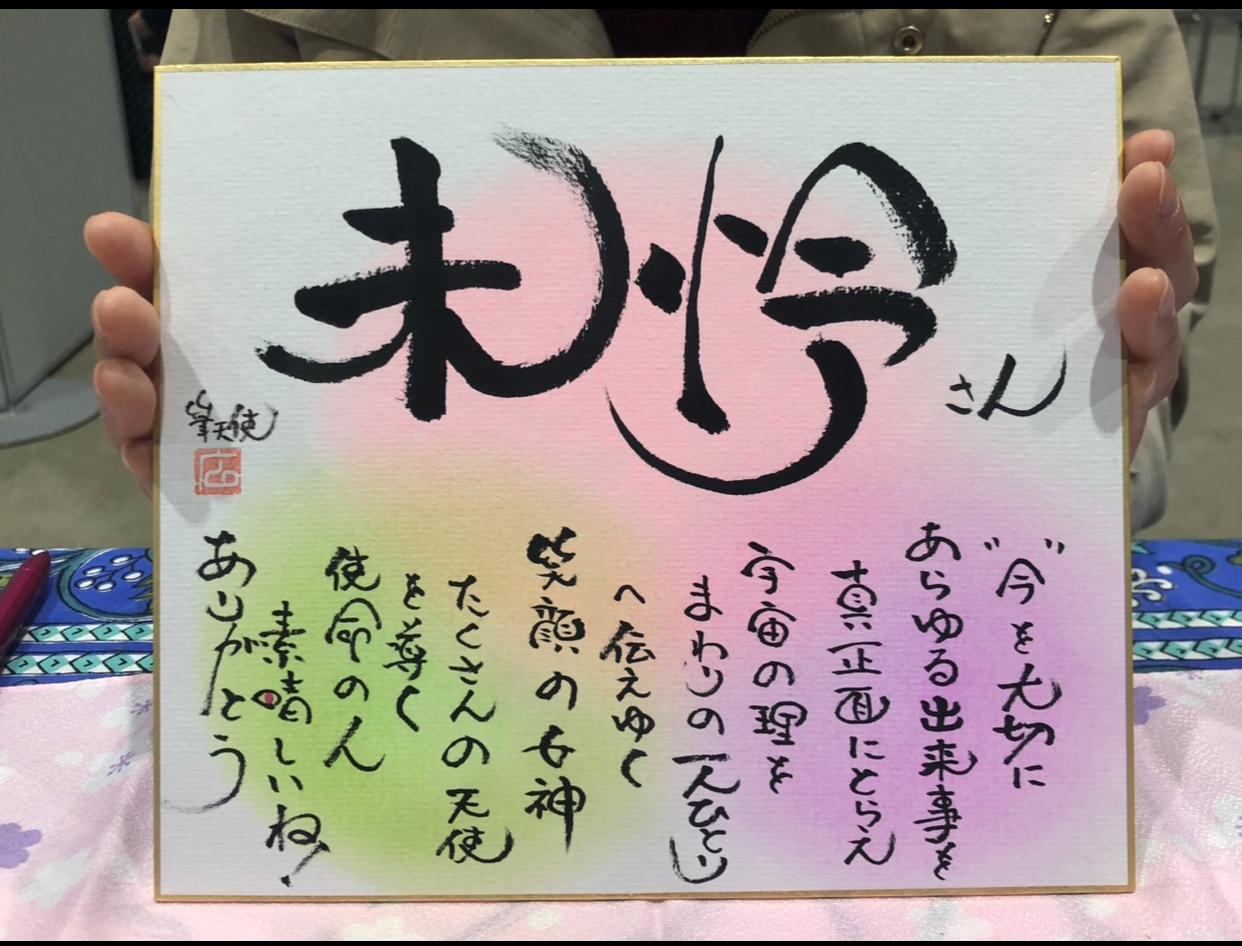 未怜さん
"今"を大切に
あらゆる出来事を
真正面にとらえ
宇宙の理を
まわりの一人ひとり
へ伝えゆく
笑顔の女神
たくさんの天使
を導く
使命の人
素晴しいね!
ありがとう
筆天使